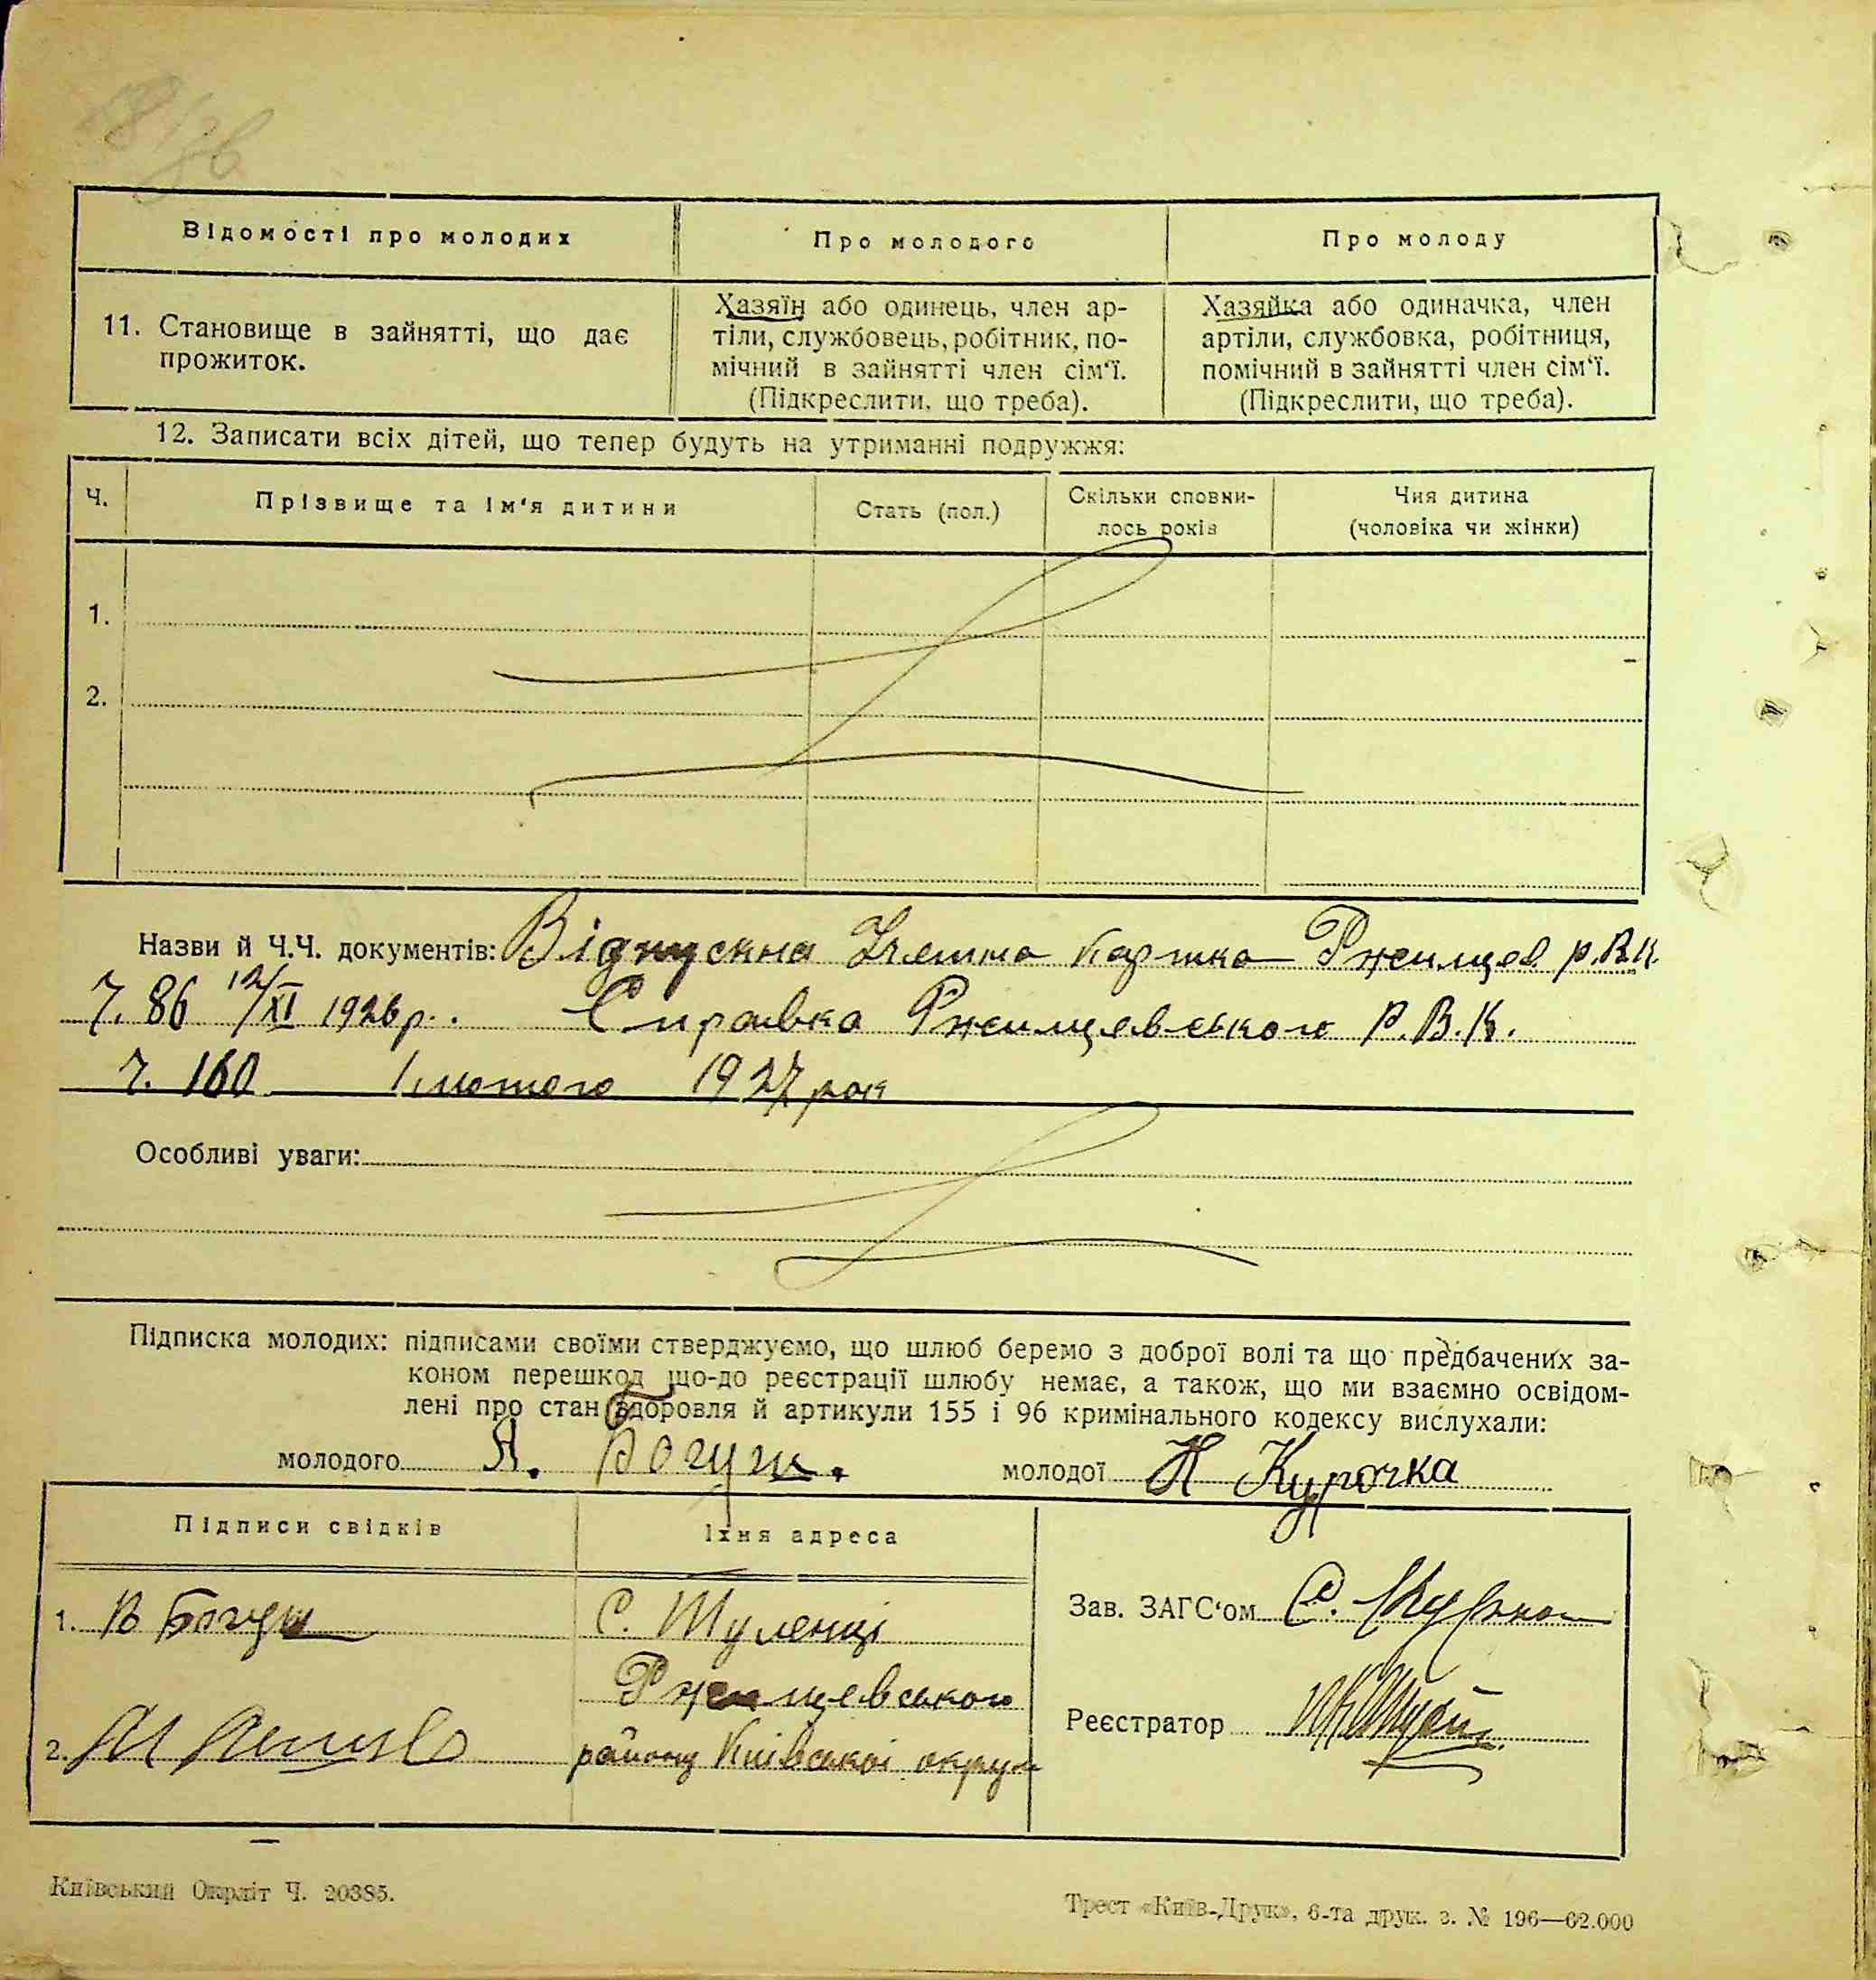 Відомості про молодих
Про молодого
Про молоду
11. Становище в зайнятті, що дає
прожиток.
Хазяїн або одинець, член ар-
тіли, службовець, робітник, по-
мічний в зайнятті член сім'ї.
(Підкреслити, що треба).
Хазяйка або одиначка, член
артіли, службовка, робітниця,
помічний в зайнятті член сім'ї.
(Підкреслити, що треба).
12. Записати всіх дітей, що тепер будуть на утриманні подружжя:
Ч.
Прізвище та ім'я дитини
Стать (пол.)
Скільки сповни-
лось років
Чия дитина
(чоловіка чи жінки)
1.
2.
Назви й Ч.Ч. документів: Відпускна картка Ржищев р.В.К.
Ч. 86 12/XI 1926 р. Справка Ржищевського Р.В.К.
Ч. 160 1 лютого 1927 рок
Особливі уваги:
Підписка молодих: підписами своїми стверджуємо, що шлюб беремо з доброї волі та що предбачених за-
коном перешкод що-до реєстрації шлюбу немає, а також, що ми взаємно освідом-
лені про стан здоровля й артикули 155 і 96 кримінального кодексу вислухали:
молодого Я. Богуш. молодої Н Курочка
Підписи свідків
Їхня адреса
1. В Богуш
С. Туленці
Ржищевського
2.
району Київської округи
Зав. ЗАГС'ом С.
Реєстратор
Київський Окрліт Ч. 20385.
Трест «Київ-Друк», 6-та друк. з. № 196—62.000